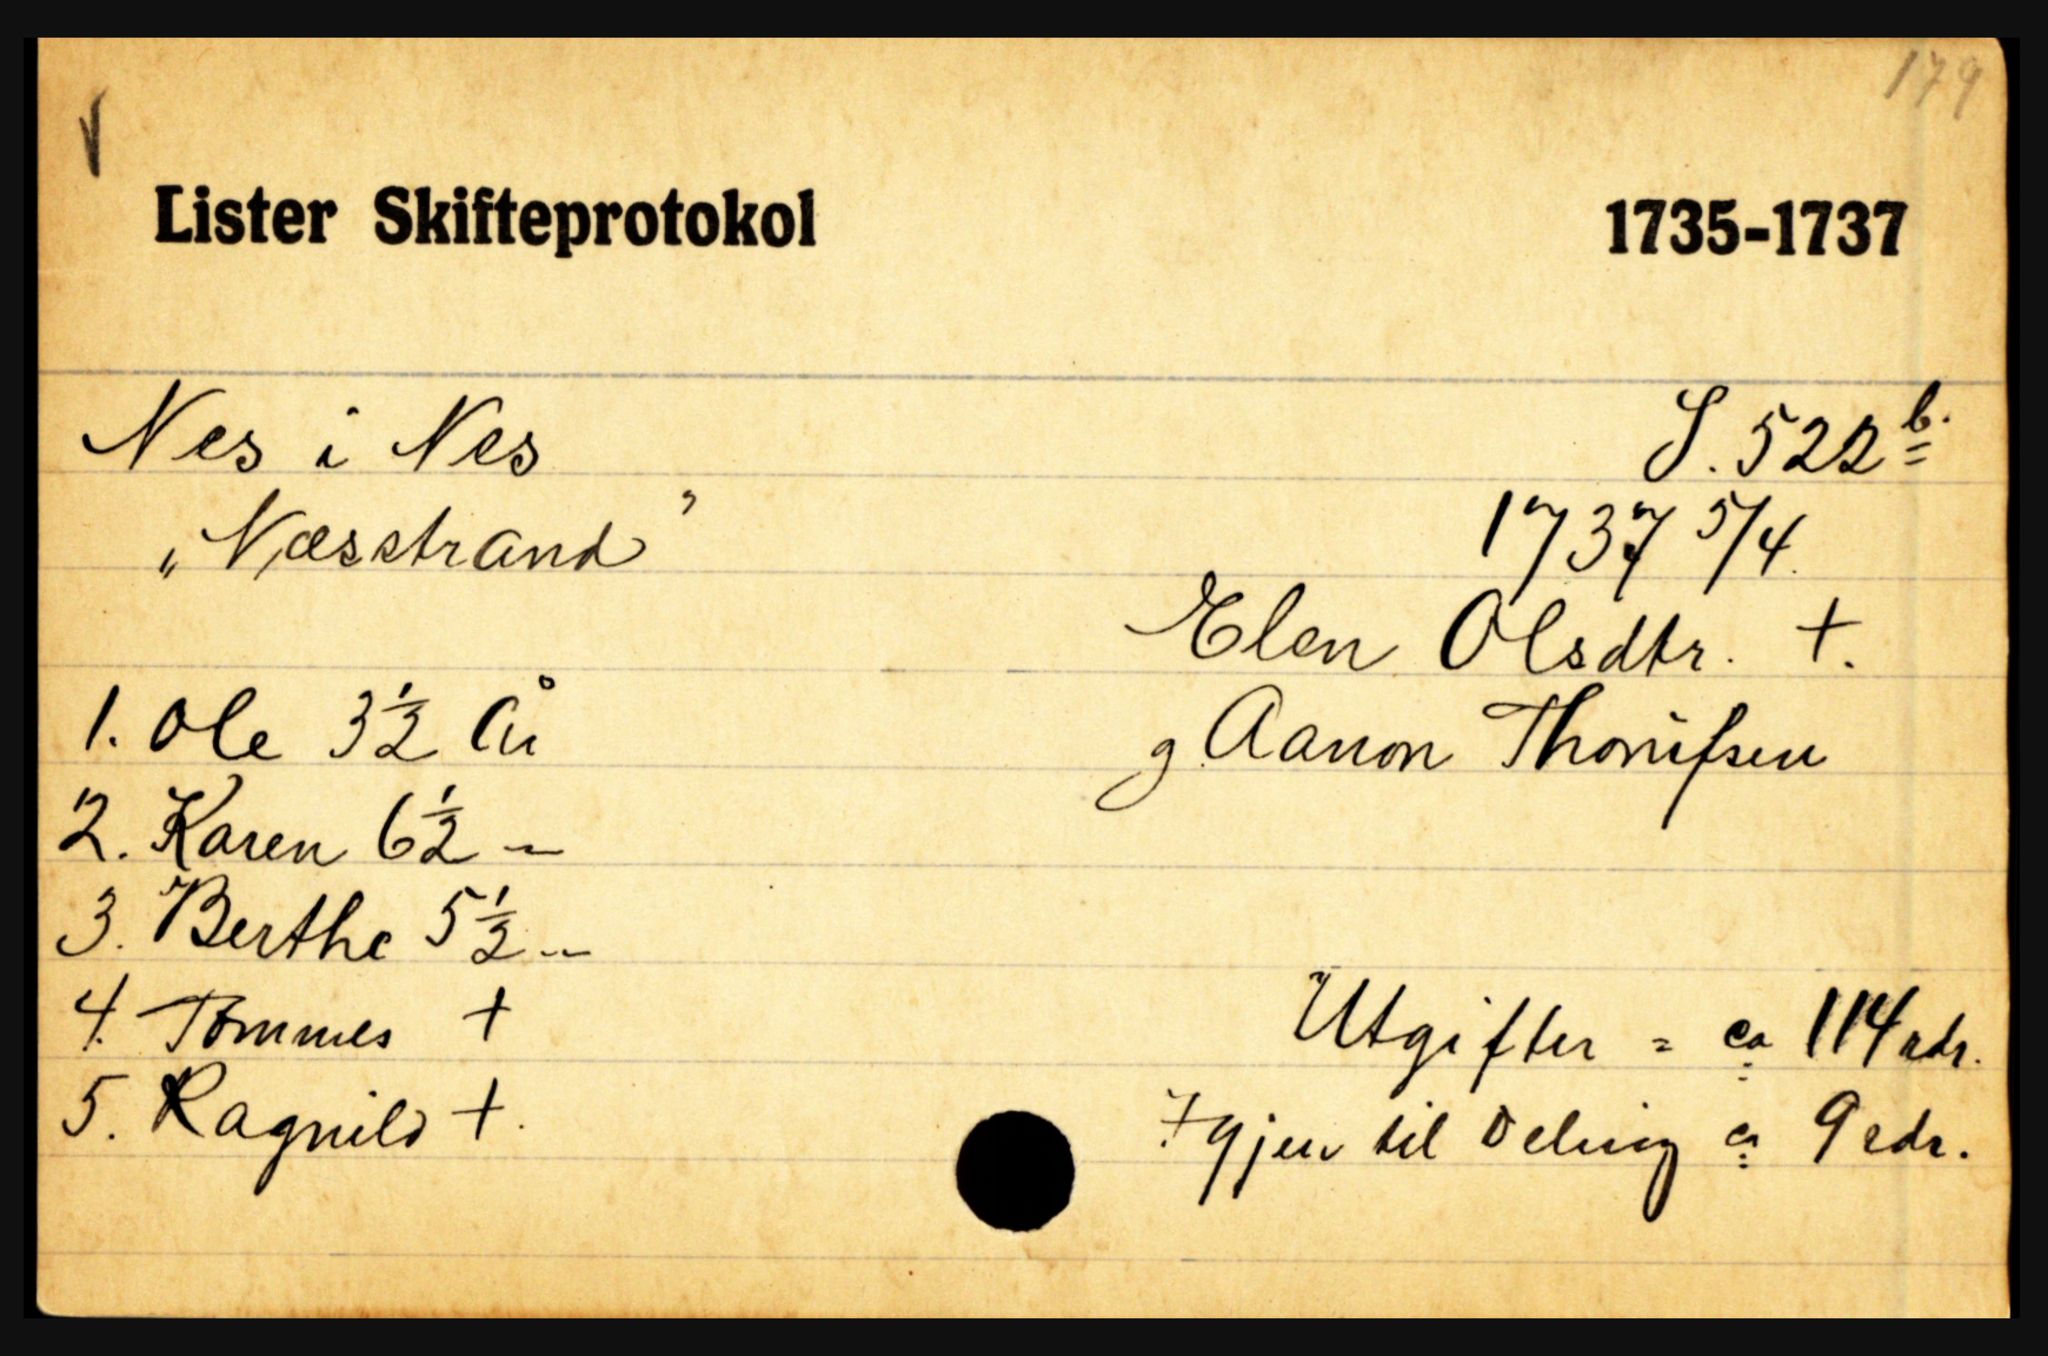 179
Lister Skifteprotokol 1735-1737
Nes i Nes S. 522 b.
„Næsstrand” 1737 5/4.
Elen Olsdtr. +.
1. Ole 3 1/2 år g Aanon
2. Karen 6 1/2 —
3. Berthe 5 1/2 —
4. Tommes + Utgifter = ca 114 rdr.
5. Ragnild +. Igjen til Deling ca 9 rdr.